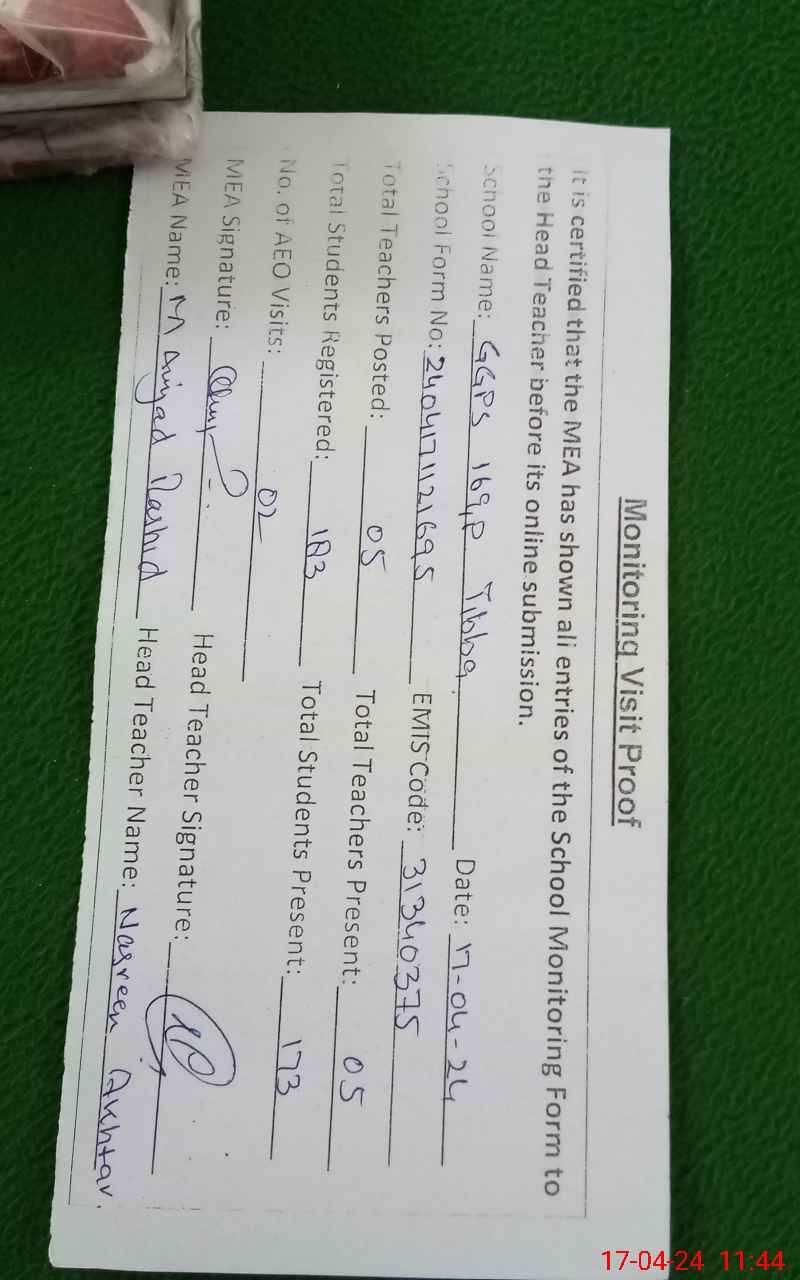 Monitoring Visit Proof
It is certified that the MEA has shown all entries of the School Monitoring Form to
the Head Teacher before its online submission.
School Name: GGPS 169,P Tibba. Date: 17-04-24
School Form No: 2404171121695 EMIS Code: 31340375
Total Teachers Posted: 05 Total Teachers Present: 05
Total Students Registered: 183 Total Students Present: 173
No. of AEO Visits: 02
MEA Signature: Head Teacher Signature:
MEA Name: M Amjad Rashid Head Teacher Name: Nasreen Akhtar.
17-04-24 11:44